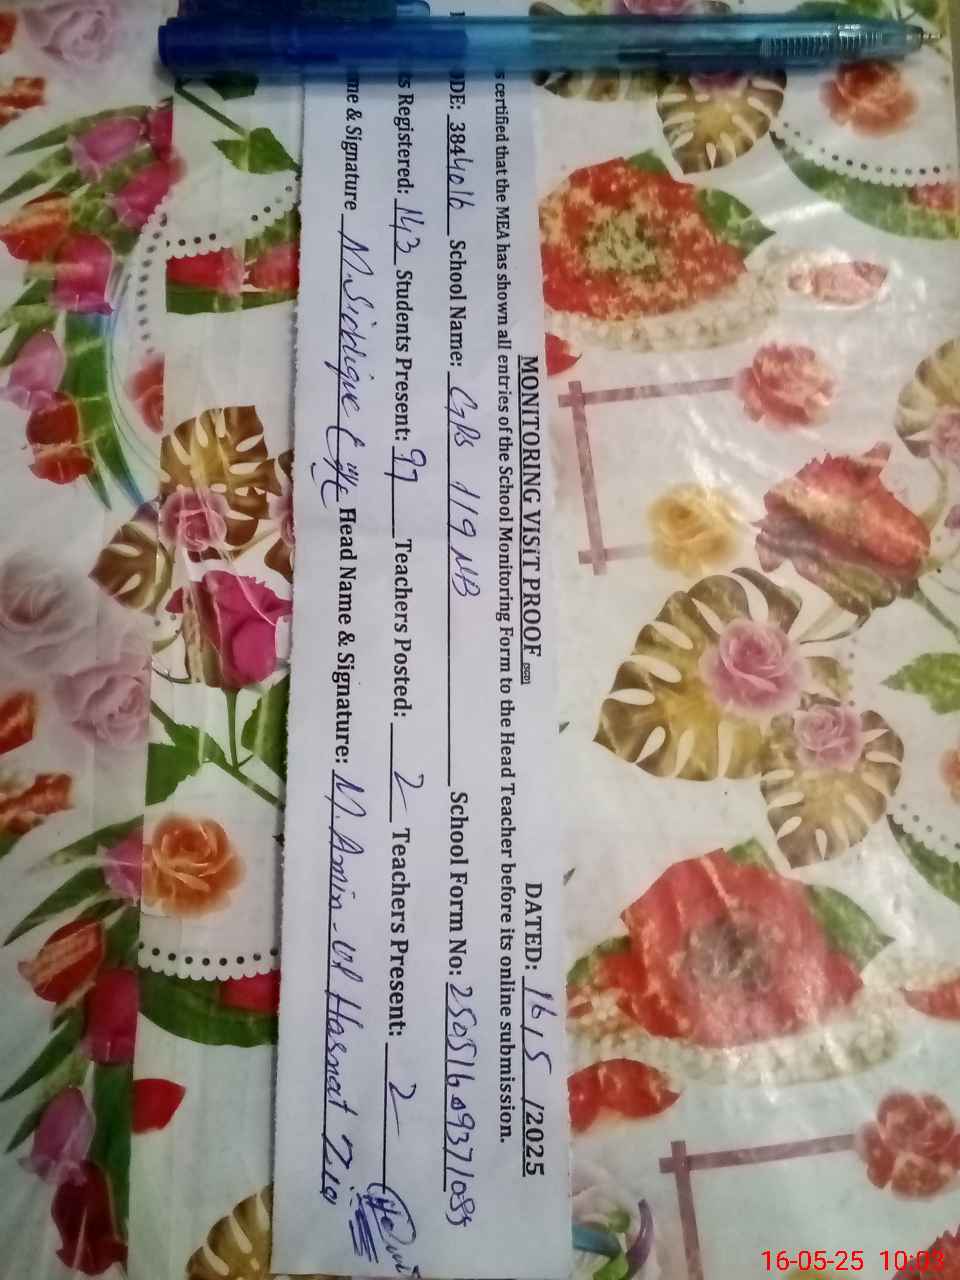 MONITORING VISIT PROOF DATED: 16/5/2025
s certified that the MEA has shown all entries of the School Monitoring Form to the Head Teacher before its online submission.
DE: 3844016 School Name: GPS 119 NB School Form No:
s Registered: 143 Students Present: 97 Teachers Posted: 2 Teachers Present: 2
me & Signature M. Siddique Head Name & Signature: M. Amin-ul Hasnat Zia
16-05-25 10:03